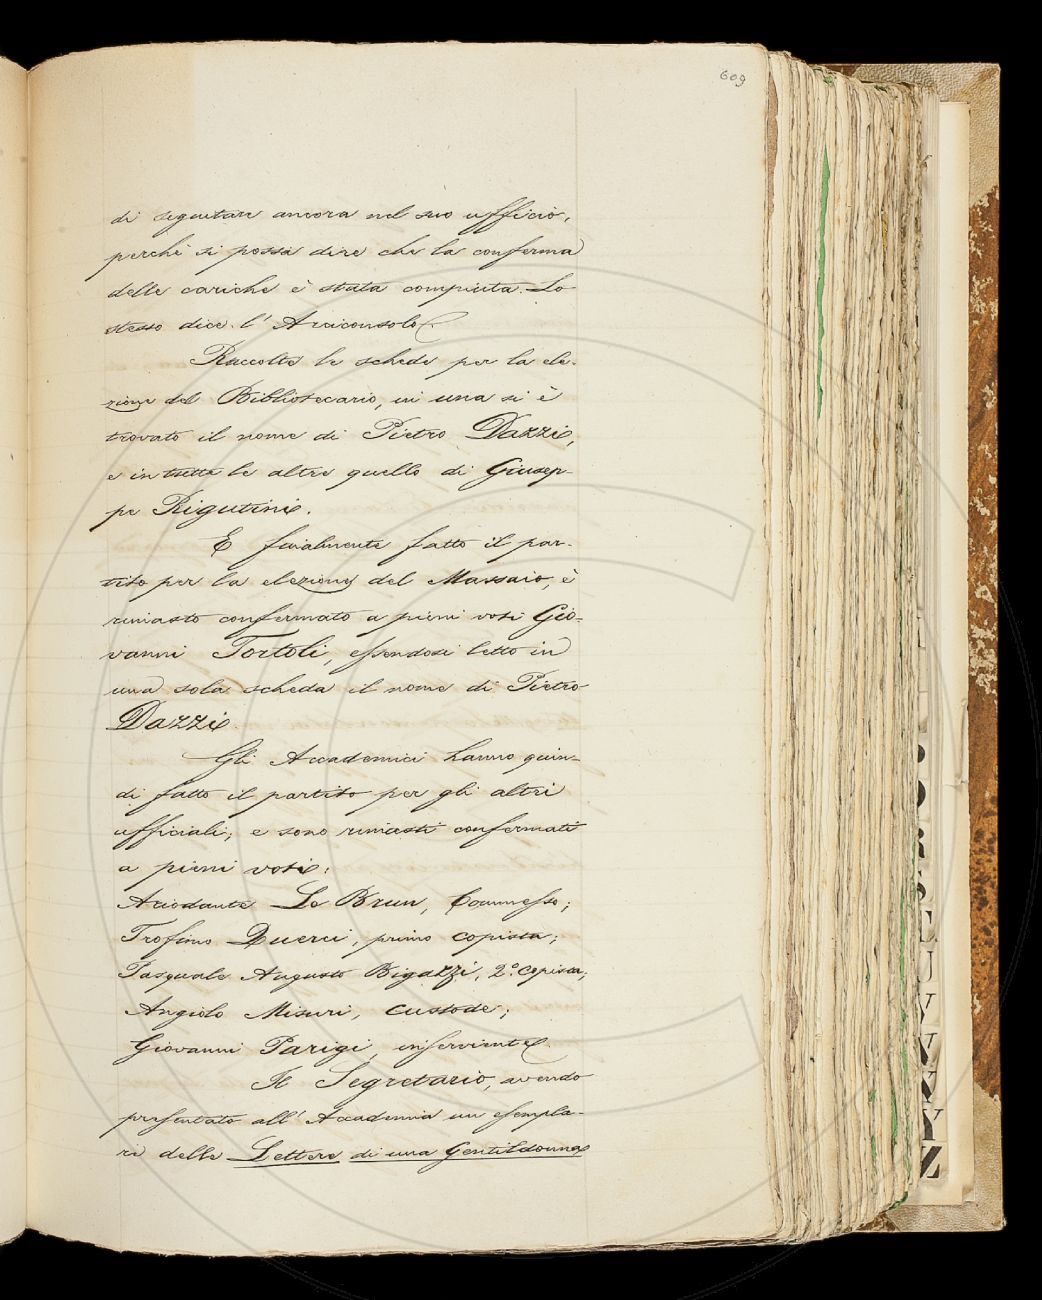 609
di seguitare ancora nel suo ufficio,
perchè si possa dire che la conferma
delle cariche è stata compiuta. Lo
stesso dice l'Arciconsolo.
Raccolte le schede per la ele-
zione del Bibliotecario, in una si è
trovato il nome di Pietro Dazzi,
e in tutte le altre quello di Giusep-
pe Rigutini.
E finalmente fatto il par-
tito per la elezione del Massaio, è
rimasto confermato a pieni voti Gio-
vanni Tortoli, essendosi letto in
una sola scheda il nome di Pietro
Dazzi.
Gli Accademici hanno quin-
di fatto il partito per gli altri
ufficiali; e sono rimasti confermati
a pieni voti:
Ariodante Le Brun, Commesso;
Trofimo Querci, primo copista;
Pasquale Augusto Bigazzi, 2.° copista;
Angiolo Misuri, custode;
Giovanni Parigi, inserviente.
Il Segretario, avendo
presentato all'Accademia un esempla-
re delle Lettere di una Gentildonna